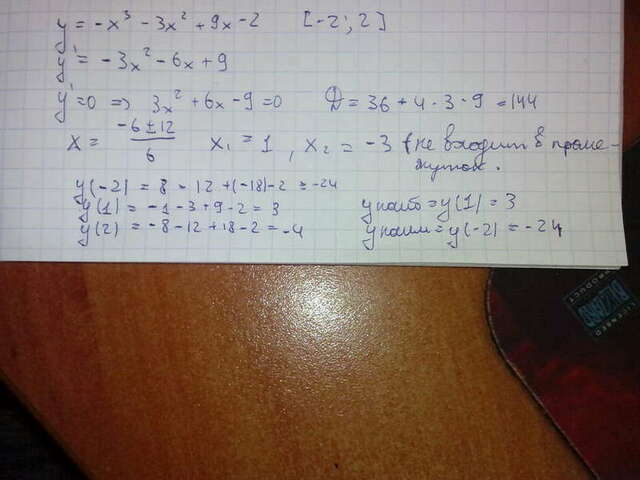 y = -x³ - 3x² + 9x - 2 [-2; 2]
y' = -3x² - 6x + 9
y' = 0 => 3x² + 6x - 9 = 0 D = 36 + 4·3·9 = 144
x = (-6 ± 12)/6 x₁ = 1, x₂ = -3 (не входит в проме-
жуток.
y(-2) = 8 - 12 + (-18) - 2 = -24
y(1) = -1 - 3 + 9 - 2 = 3 y наиб = y(1) = 3
y(2) = -8 - 12 + 18 - 2 = -4 y наим = y(-2) = -24
BLIZZARD
LICENSED
PRODUCT